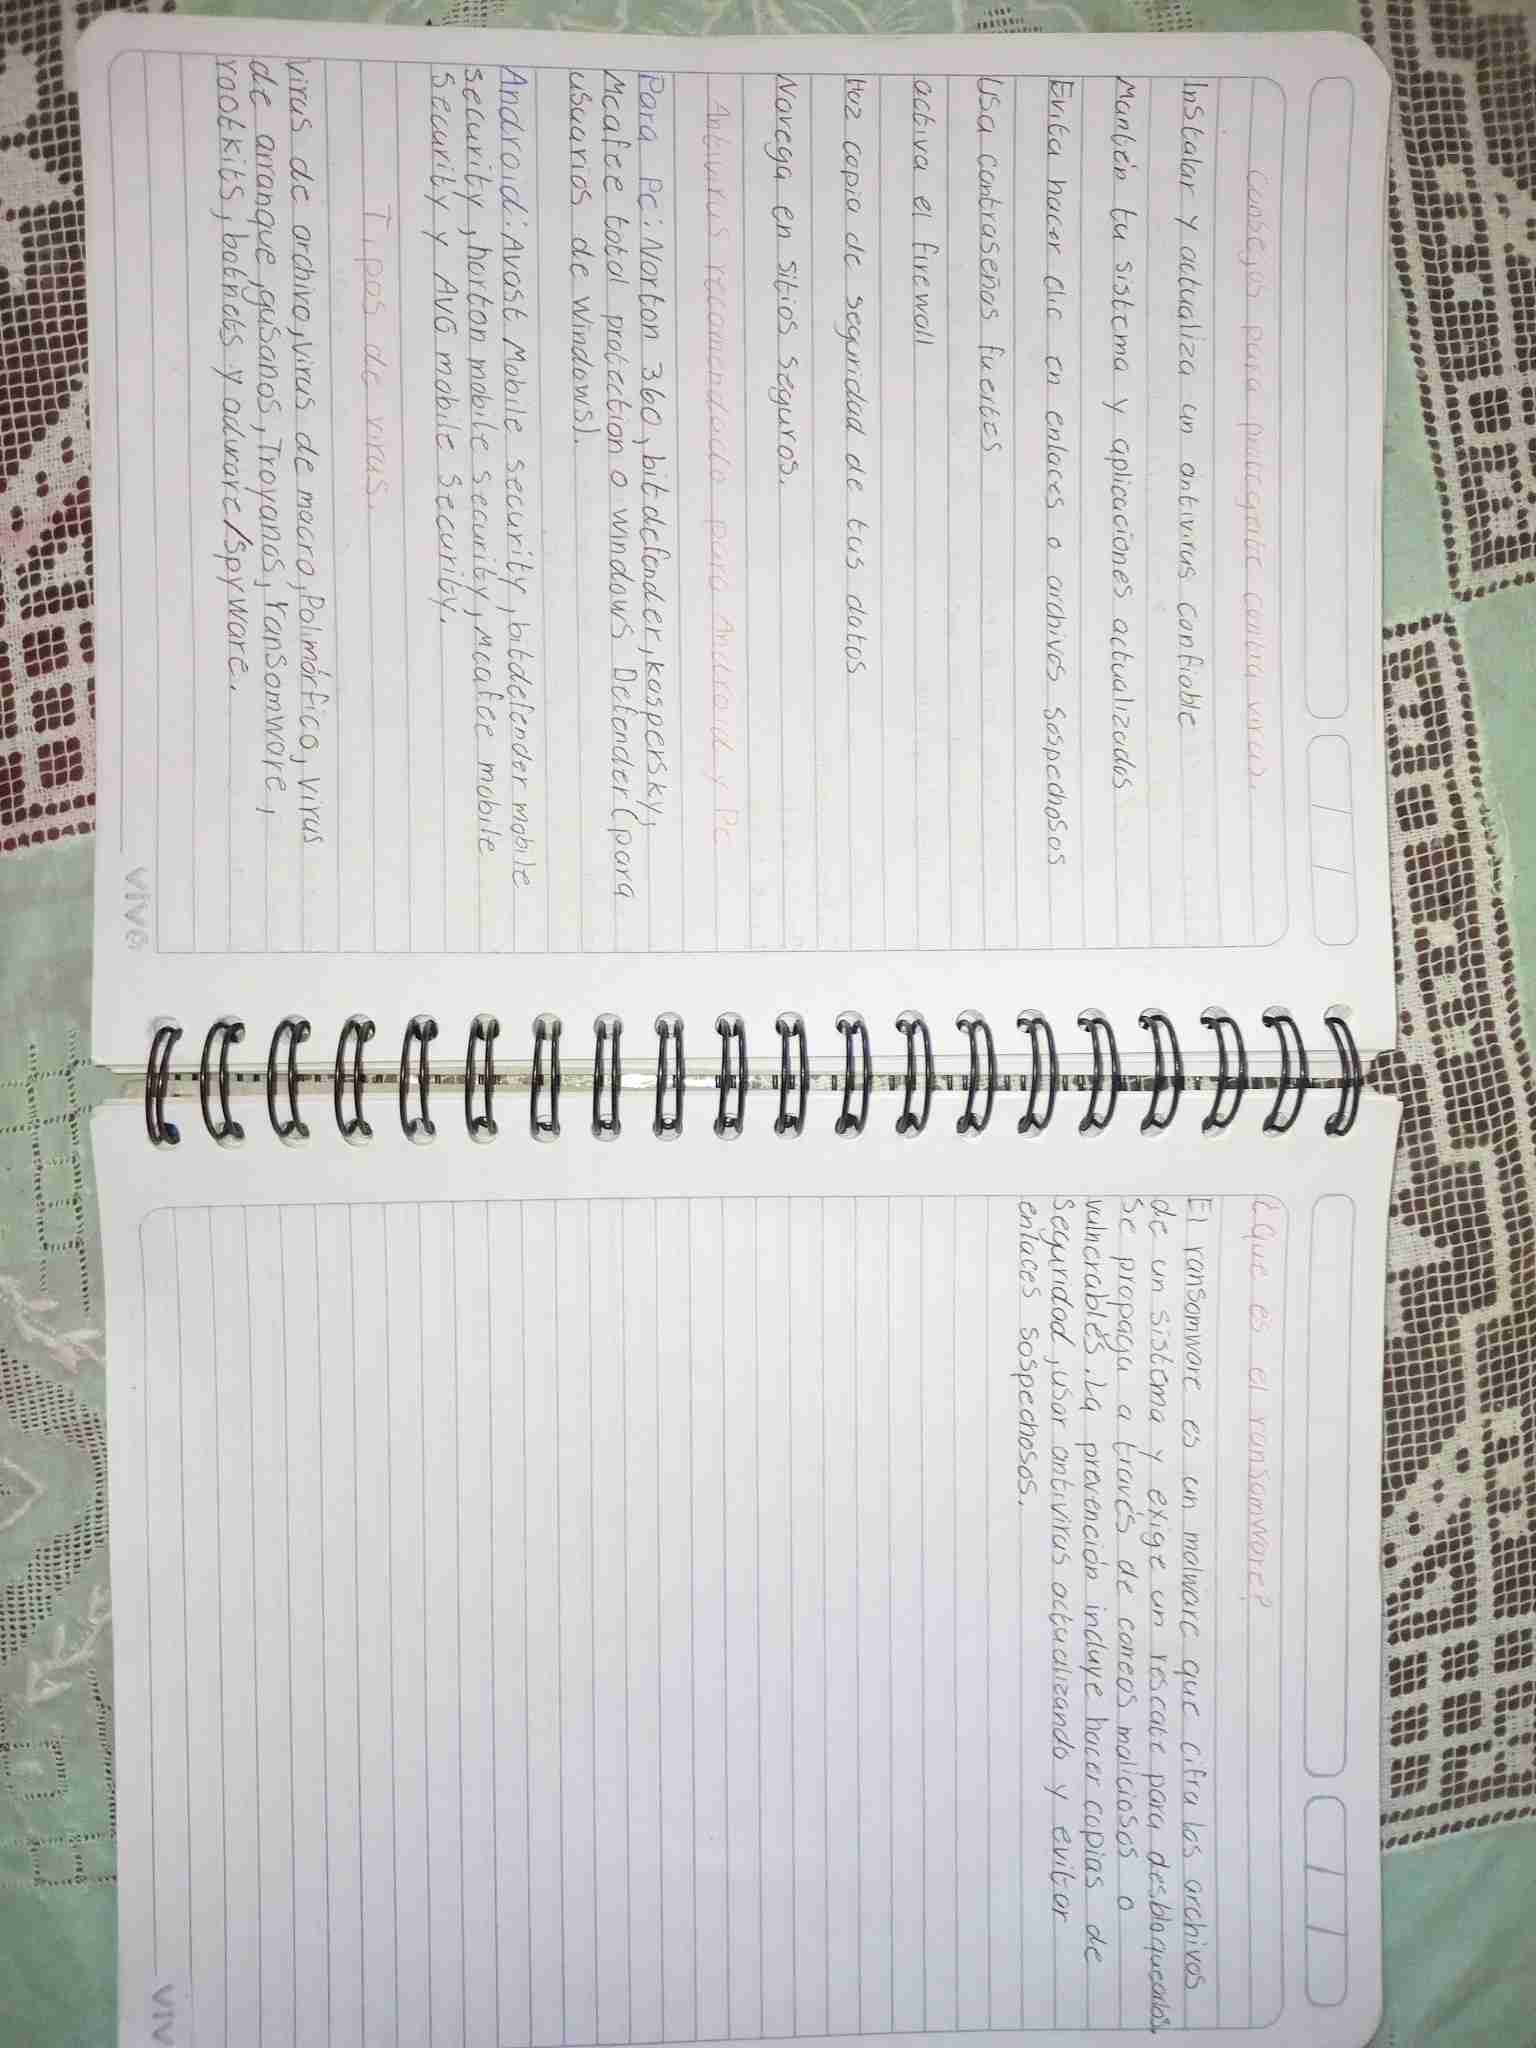 consejos para protegerte contra virus.
Instalar y actualiza un antivirus confiable
Mantén tu sistema y aplicaciones actualizados
Evita hacer clic en enlaces o archivos sospechosos
Usa contraseñas fuertes
activa el firewall
Haz copia de seguridad de tus datos
Navega en sitios seguros.
Antivirus recomendado para Android y Pc
Para Pc: Norton 360, bitdefender, kaspersky,
Mcafee total protection o windows Defender (para
usuarios de windows).
Android: Avast Mobile security, bitdefender mobile
security, norton mobile security, Mcafee mobile
Security y AVG mobile security.
Tipos de virus.
Virus de archivo, virus de macro, Polimórfico, virus
de arranque, gusanos, Troyanos, ransomware,
rootkits, botnets y adware/spyware.
vivo
¿Que es el ransomware?
El ransomware es un malware que cifra los archivos
de un sistema y exige un rescate para desbloquearlos.
Se propaga a través de correos maliciosos o
vulnerables. La prevención incluye hacer copias de
seguridad, usar antivirus actualizando y evitar
enlaces sospechosos.
viv